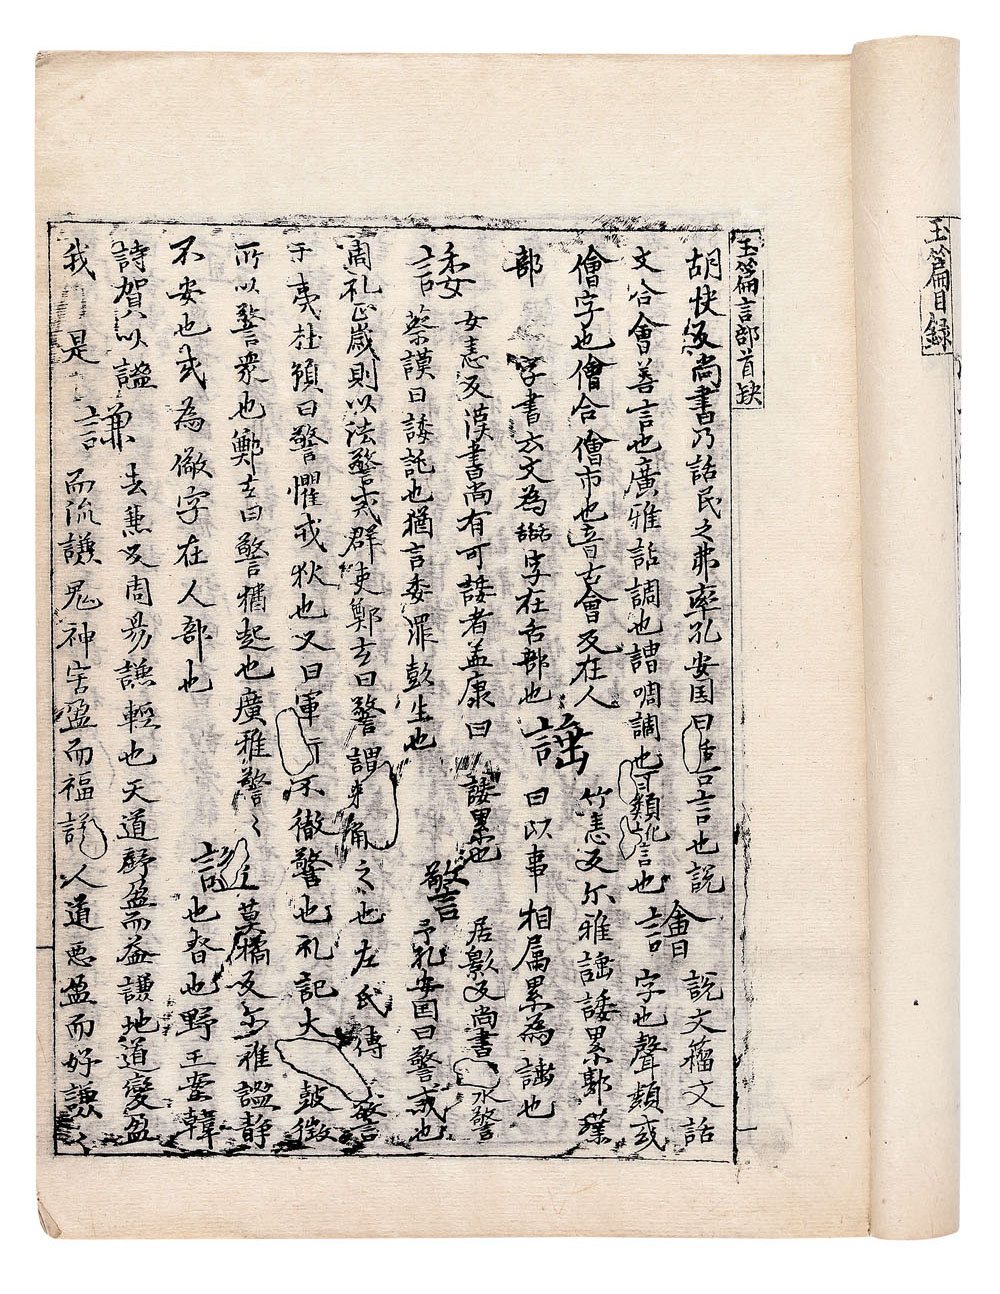 玉篇目録
玉篇言部首缺
胡快反尚書乃話民之弗率孔安国曰話言也說
文合會善言也廣雅話調也譮啁調也聲類訛言也譮說文籀文話
儈字也儈合儈市也音古會反在人字也聲類或
部諈竹恚反尓雅諈諉累郭璞
字書古文為字在舌部也曰以事相属累為諈也
諉女恚反漢書尚有可諉者孟康曰諉累也
蔡謨曰諉託也猶言委罪彭生也警居影反尚書水警
周礼正歲則以法警戒群吏鄭玄曰警謂之也左氏傳
予孔安国曰警戒也
于夷杜預曰警懼戎狄也又曰軍不徹警也礼記大鼓徵
所以警衆也鄭玄曰警猶起也廣雅警謐莫橘反尓雅謐静
不安也或為儆字在人部也也眘也野王案韓
詩賀以謐謙去兼反周易謙輕也天道虧盈而益謙地道變盈
我是而流謙鬼神害盈而福謙人道惡盈而好謙